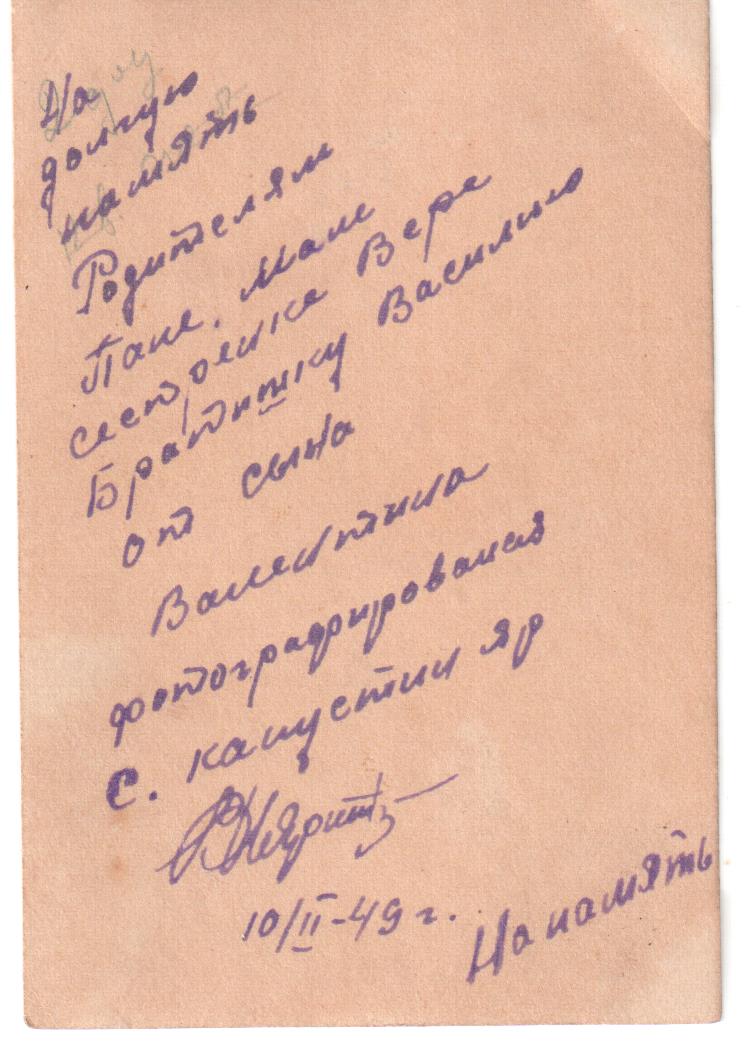 На
долгую
память
Родителям
Папе. маме
сестренке Вере
Братишку Василию
от сына
Валентина
фотографирования
с. капустин яр
10/II-49 г.
На память